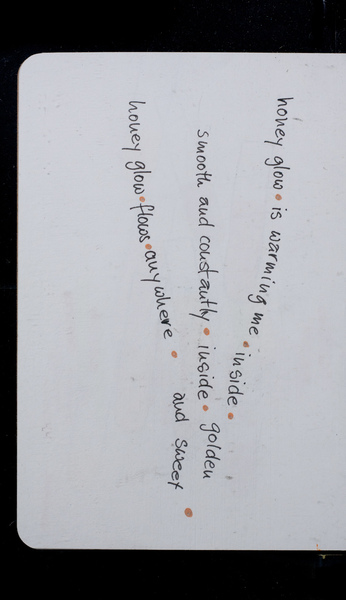 honey glow • is warming me • inside •
smooth and constantly • inside • golden
honey glow • flows • anywhere •
and sweet •